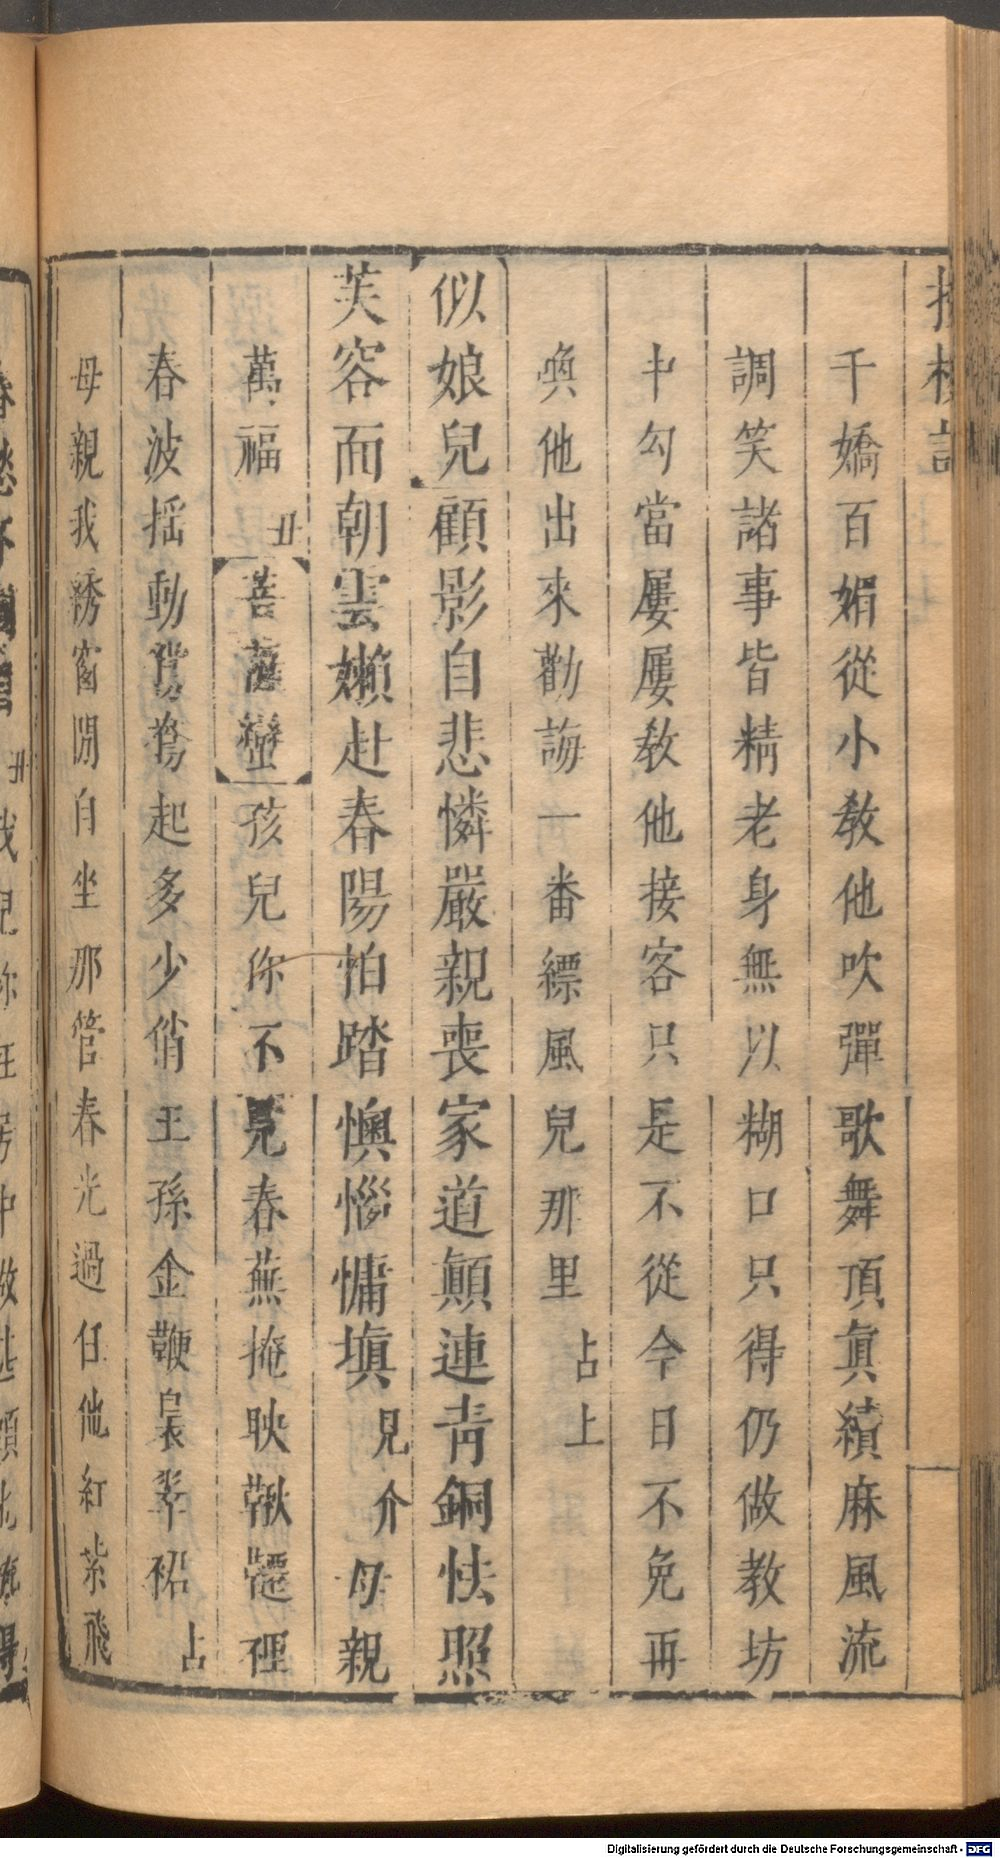 千嬌百媚從小教他吹彈歌舞頂眞續麻風流
調笑諸事皆精老身無以糊口只得仍做教坊
中勾當屢屢教他接客只是不從今日不免再
喚他出來勸誨一番縹風兒那里占上
似娘兒顧影自悲憐嚴親喪家道顚連靑銅怯照
芙容而朝雲嬾赴春陽怕踏懊惱慵塡見介母親
萬福丑菩薩蠻孩兒你不見春蕪掩映鞦韆裡
春波摇動鴛鴦起多少俏王孫金鞭裊翠裙占
母親我綉窗閒自坐那管春光過任他紅紫飛
丑我兒你
Digitalisierung gefördert durch die Deutsche Forschungsgemeinschaft - DFG